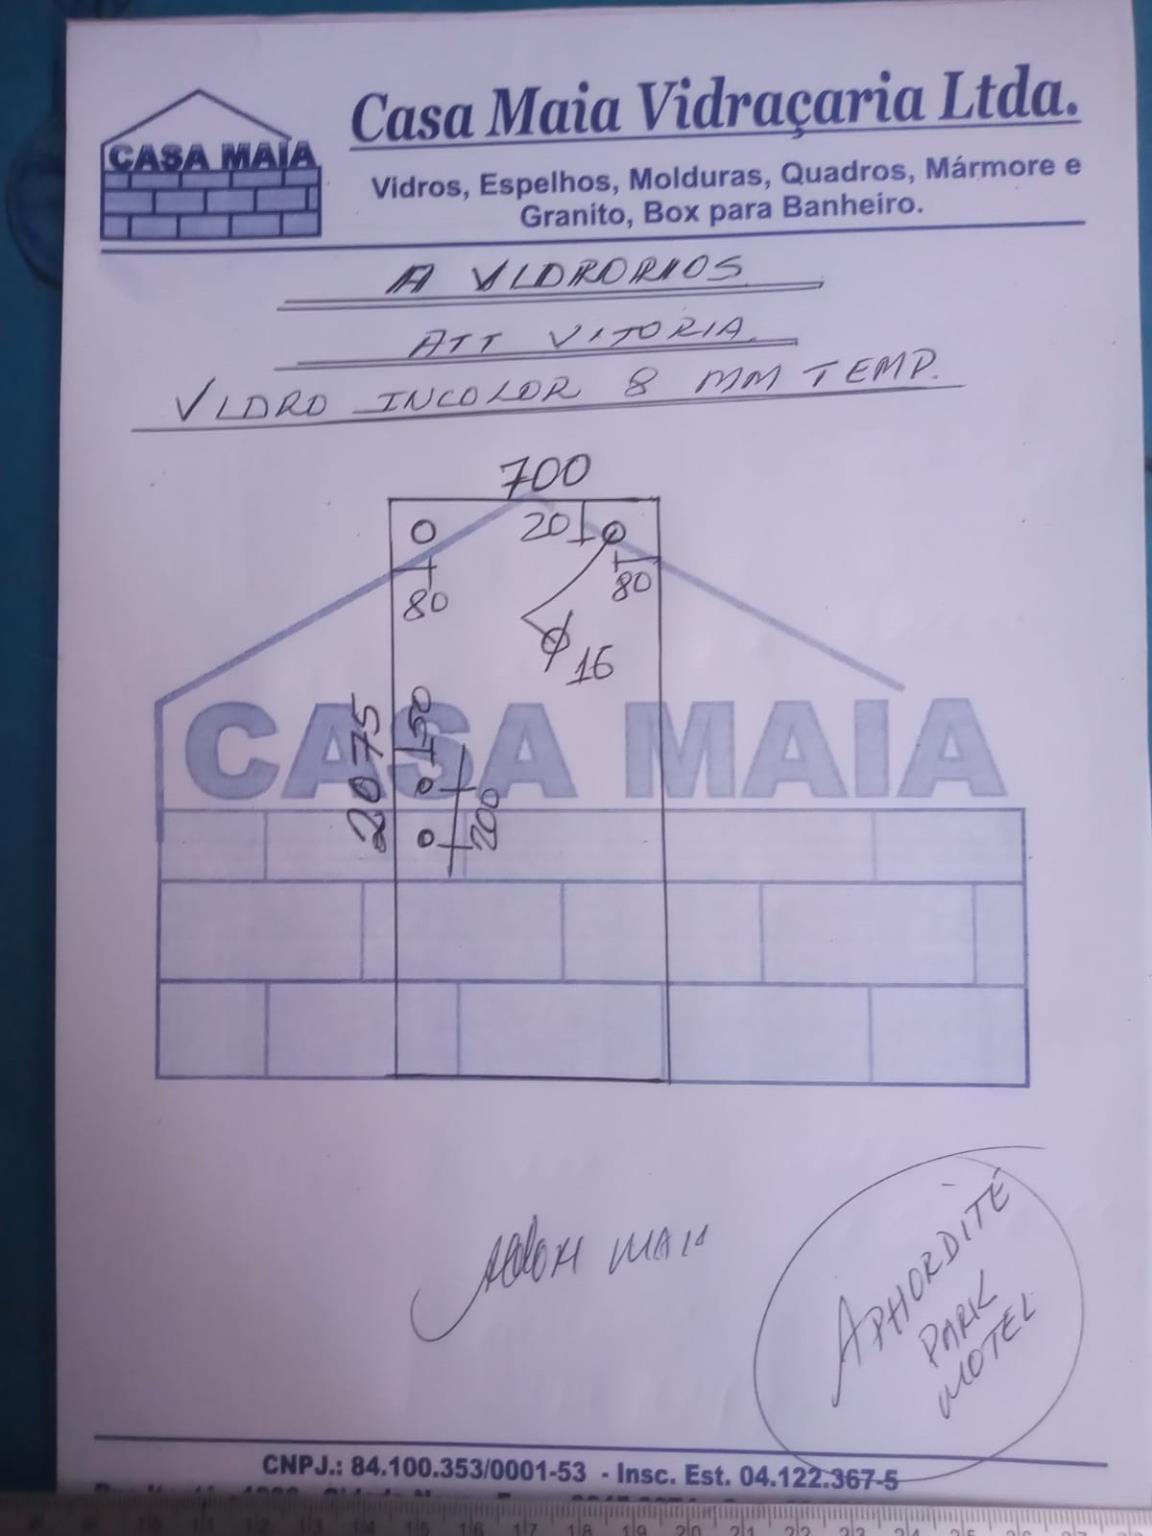 CASA MAIA
Casa Maia Vidraçaria Ltda.
Vidros, Espelhos, Molduras, Quadros, Mármore e
Granito, Box para Banheiro.
A VIDRORIOS
ATT VITORIA
VIDRO INCOLOR 8 MM TEMP.
700
20
80
80
Ø 16
2075
50
200
CASA MAIA
MAIA
APHORDITE
PARK
MOTEL
CNPJ.: 84.100.353/0001-53 - Insc. Est. 04.122.367-5
15 16 17 18 19 20 21 22 23 24 25